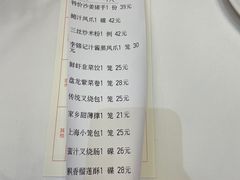 特价沙姜猪手1 份 39元
鲍汁凤爪1 碟 42元
三丝炒米粉1 例 42元
李锦记汁酱蒸凤爪1 笼
鲜虾韭菜饺1 笼 25元
盘龙紫菜卷1 笼 28元
传统叉烧包1 笼 25元
家乡甜薄撑1 笼 21元
上海小笼包1 笼 25元
蜜汁叉烧肠1 碟 26元
飘香榴莲酥1 碟 28元